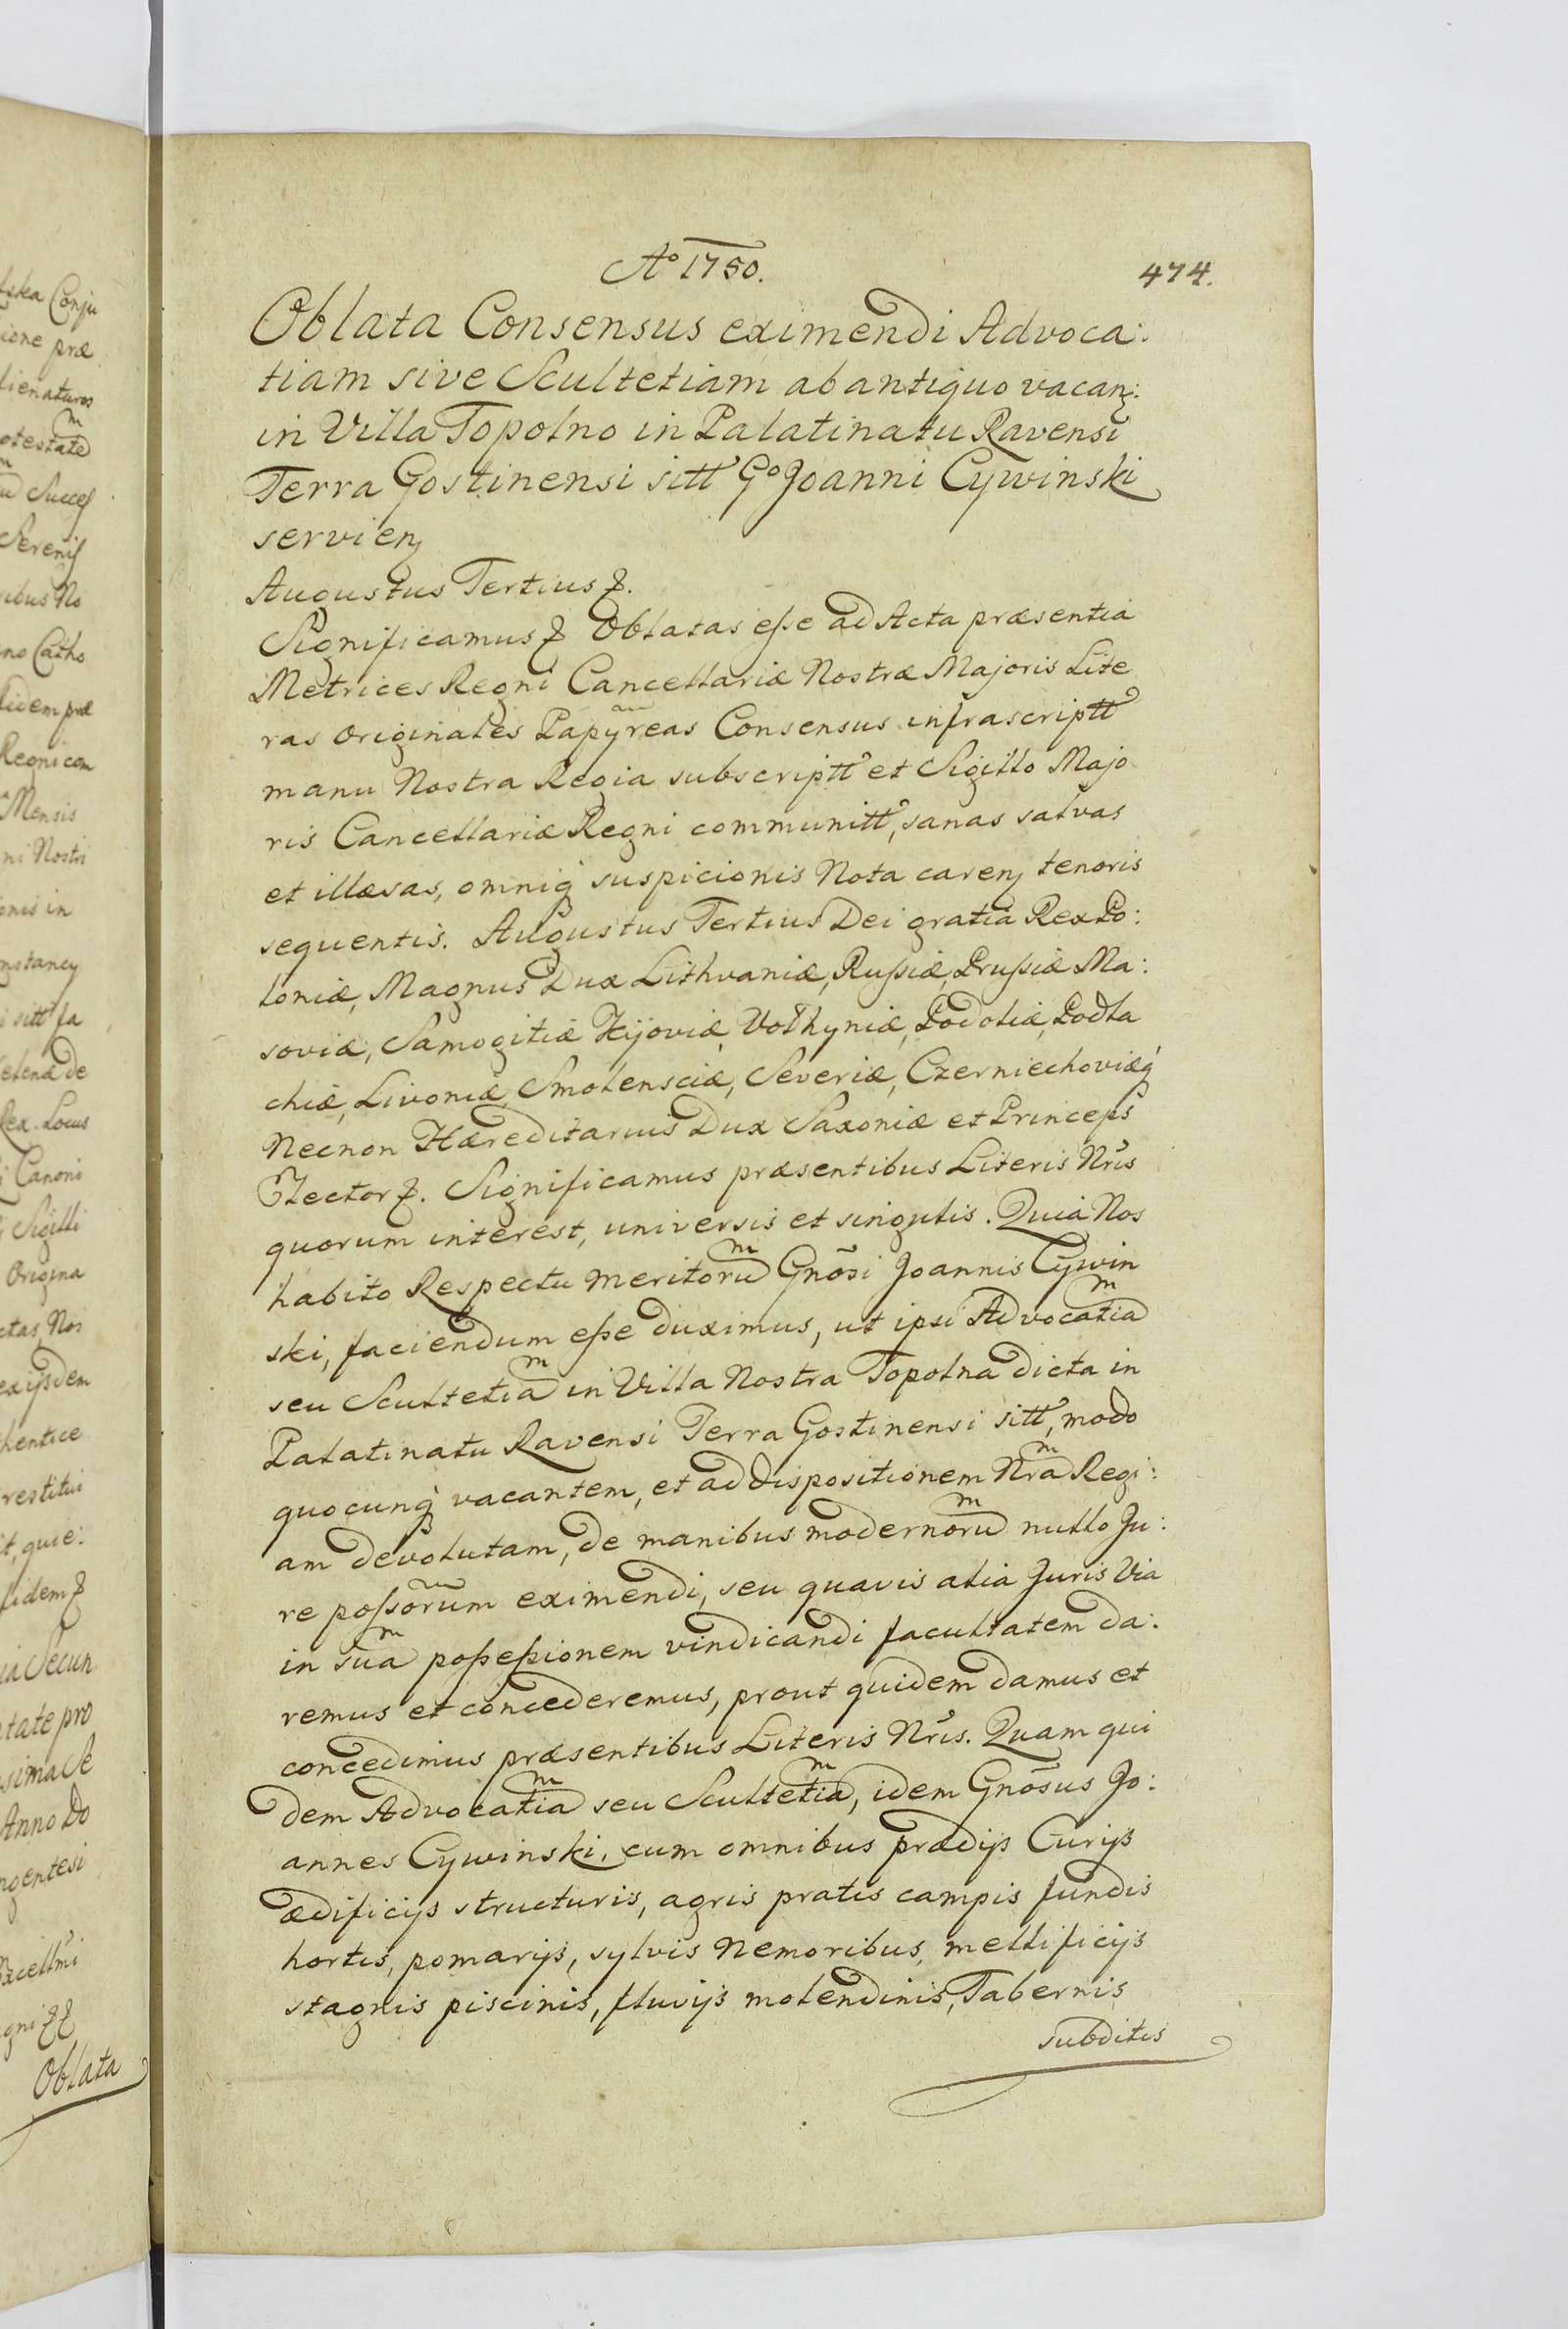 Aᵒ 1750.
474.
Oblata Consensus eximendi Advoca:
tiam sive Scultetiam ab antiquo vacanʒ:
in Villa Topolno in Palatinatu Ravensi
Terra Gostinensi sitt Gᵒ Joanni Cywinski
servienʒ
Augustus Tertius ꝛ.
Significamus ꝛ Oblatas eſse ad Acta præsentia
Metrices Regni Cancellariæ Nostræ Majoris Lite
ras Originales Papyreas Consensus infrascriptt
manu Nostra Regia subscriptt et Sigillo Majo
ris Cancellariæ Regni communitt, sanas salvas
et illæsas, omniq́ suspicionis Nota carenʒ tenoris
sequentis. Augustus Tertius Dei gratia Rex Po:
loniæ, Magnus Dux Lithvaniæ, Ruſsiæ, Pruſsiæ Ma:
soviæ, Samogitiæ Kijoviæ, Volhyniæ, Podoliæ, Podla
chiæ, Livoniæ, Smolensciæ, Severiæ, Czerniechoviæq́
Necnon Hæreditarius Dux Saxoniæ et Princeps
Elector ꝛ. Significamus præsentibus Literis Nris
quorum interest, universis et singulis. Quia Nos
habito Respectu meritoruᵐ Gnõsi Joannis Cywin
ski, faciendum eſse duximus, ut ipsi Advocatiaᵐ
seu Scultetiaᵐ in Villa Nostra Topolna dicta in
Palatinatu Ravensi Terra Gostinensi sitt, modo
quocunq́ vacantem, et ad dispositionem Nraᵐ Regi:
am devolutam, de manibus modernoruᵐ nullo Ju:
re poſsõrum eximendi, seu quavis alia Juris Via
in suaᵐ poſseſsionem vindicandi facultatem da:
remus et concederemus, prout quidem damus et
concedimus præsentibus Literis Nris. Quam qui
dem Advocatiaᵐ seu Scultetiaᵐ, idem Gnõsus Jo:
annes Cywinski, cum omnibus prædijs Curijs
ædificijs structuris, agris pratis campis fundis
hortis, pomarijs, sylvis Nemoribus, mellificijs
stagnis piscinis, fluvijs molendinis, Tabernis
subditis